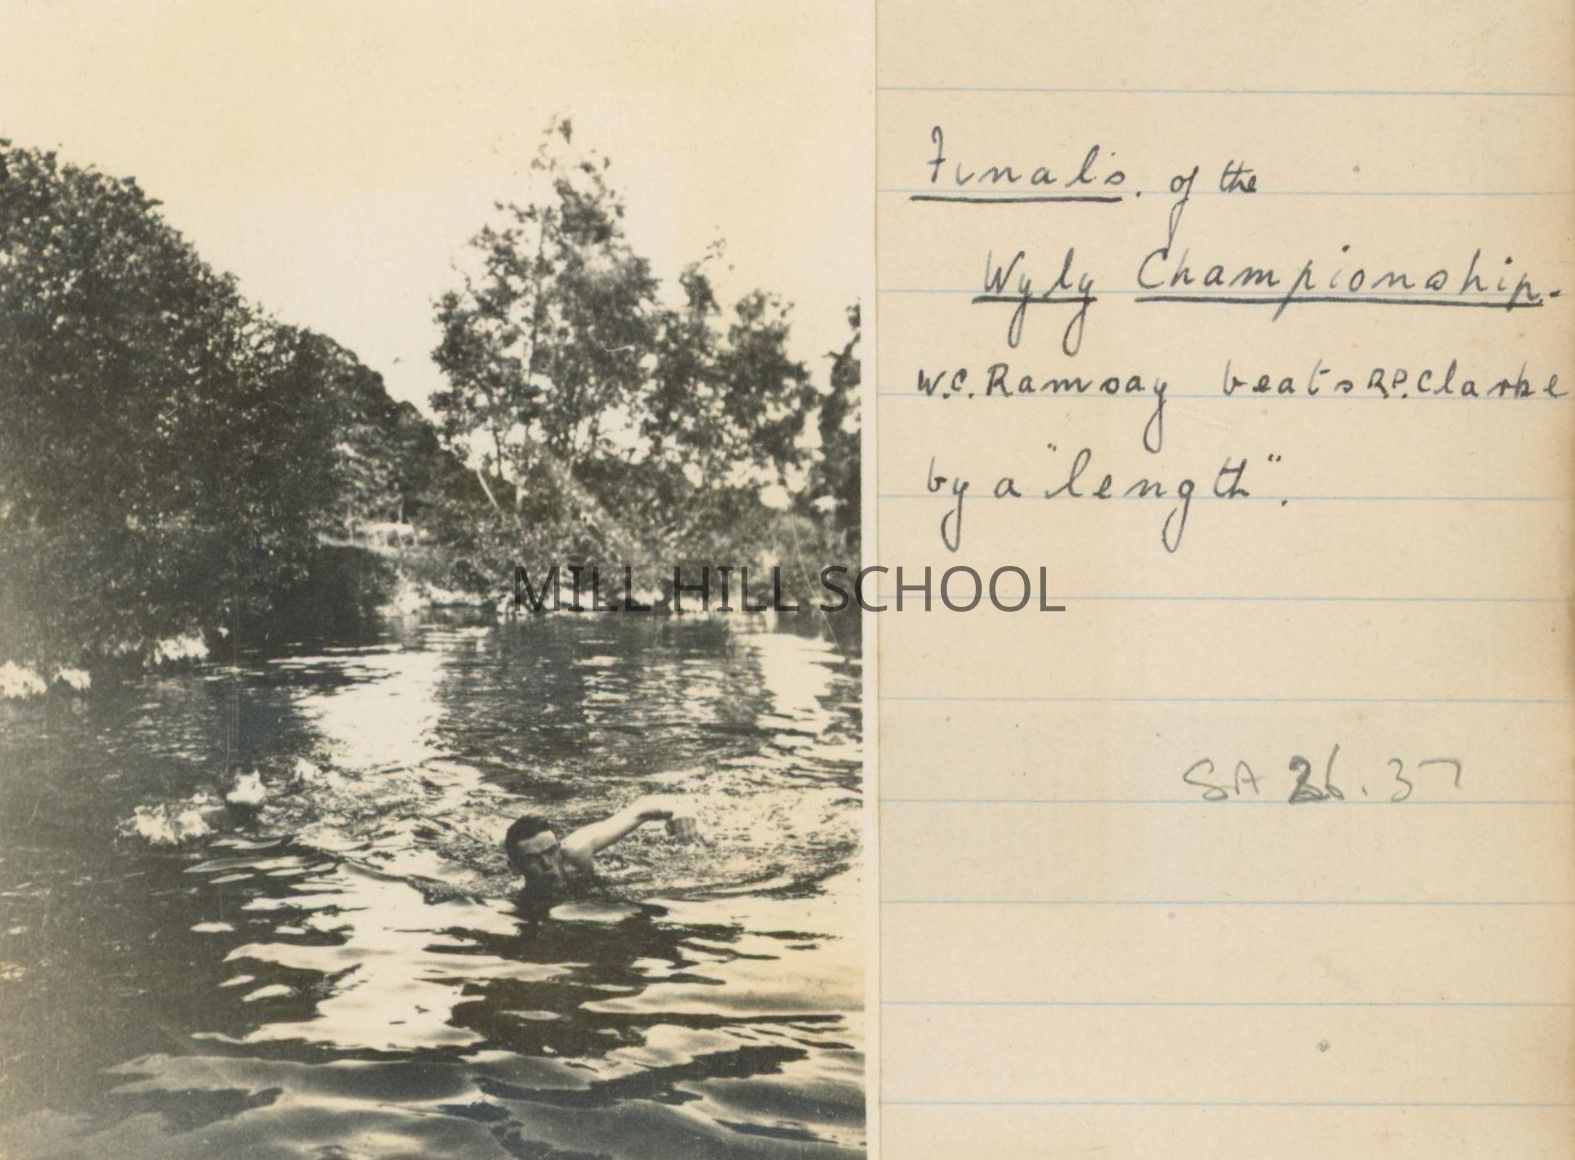 Finals. of the
Wyly Championship.
W.C. Ramsay beats R.P. Clarke
by a "length".
MILL HILL SCHOOL
SA 26.37